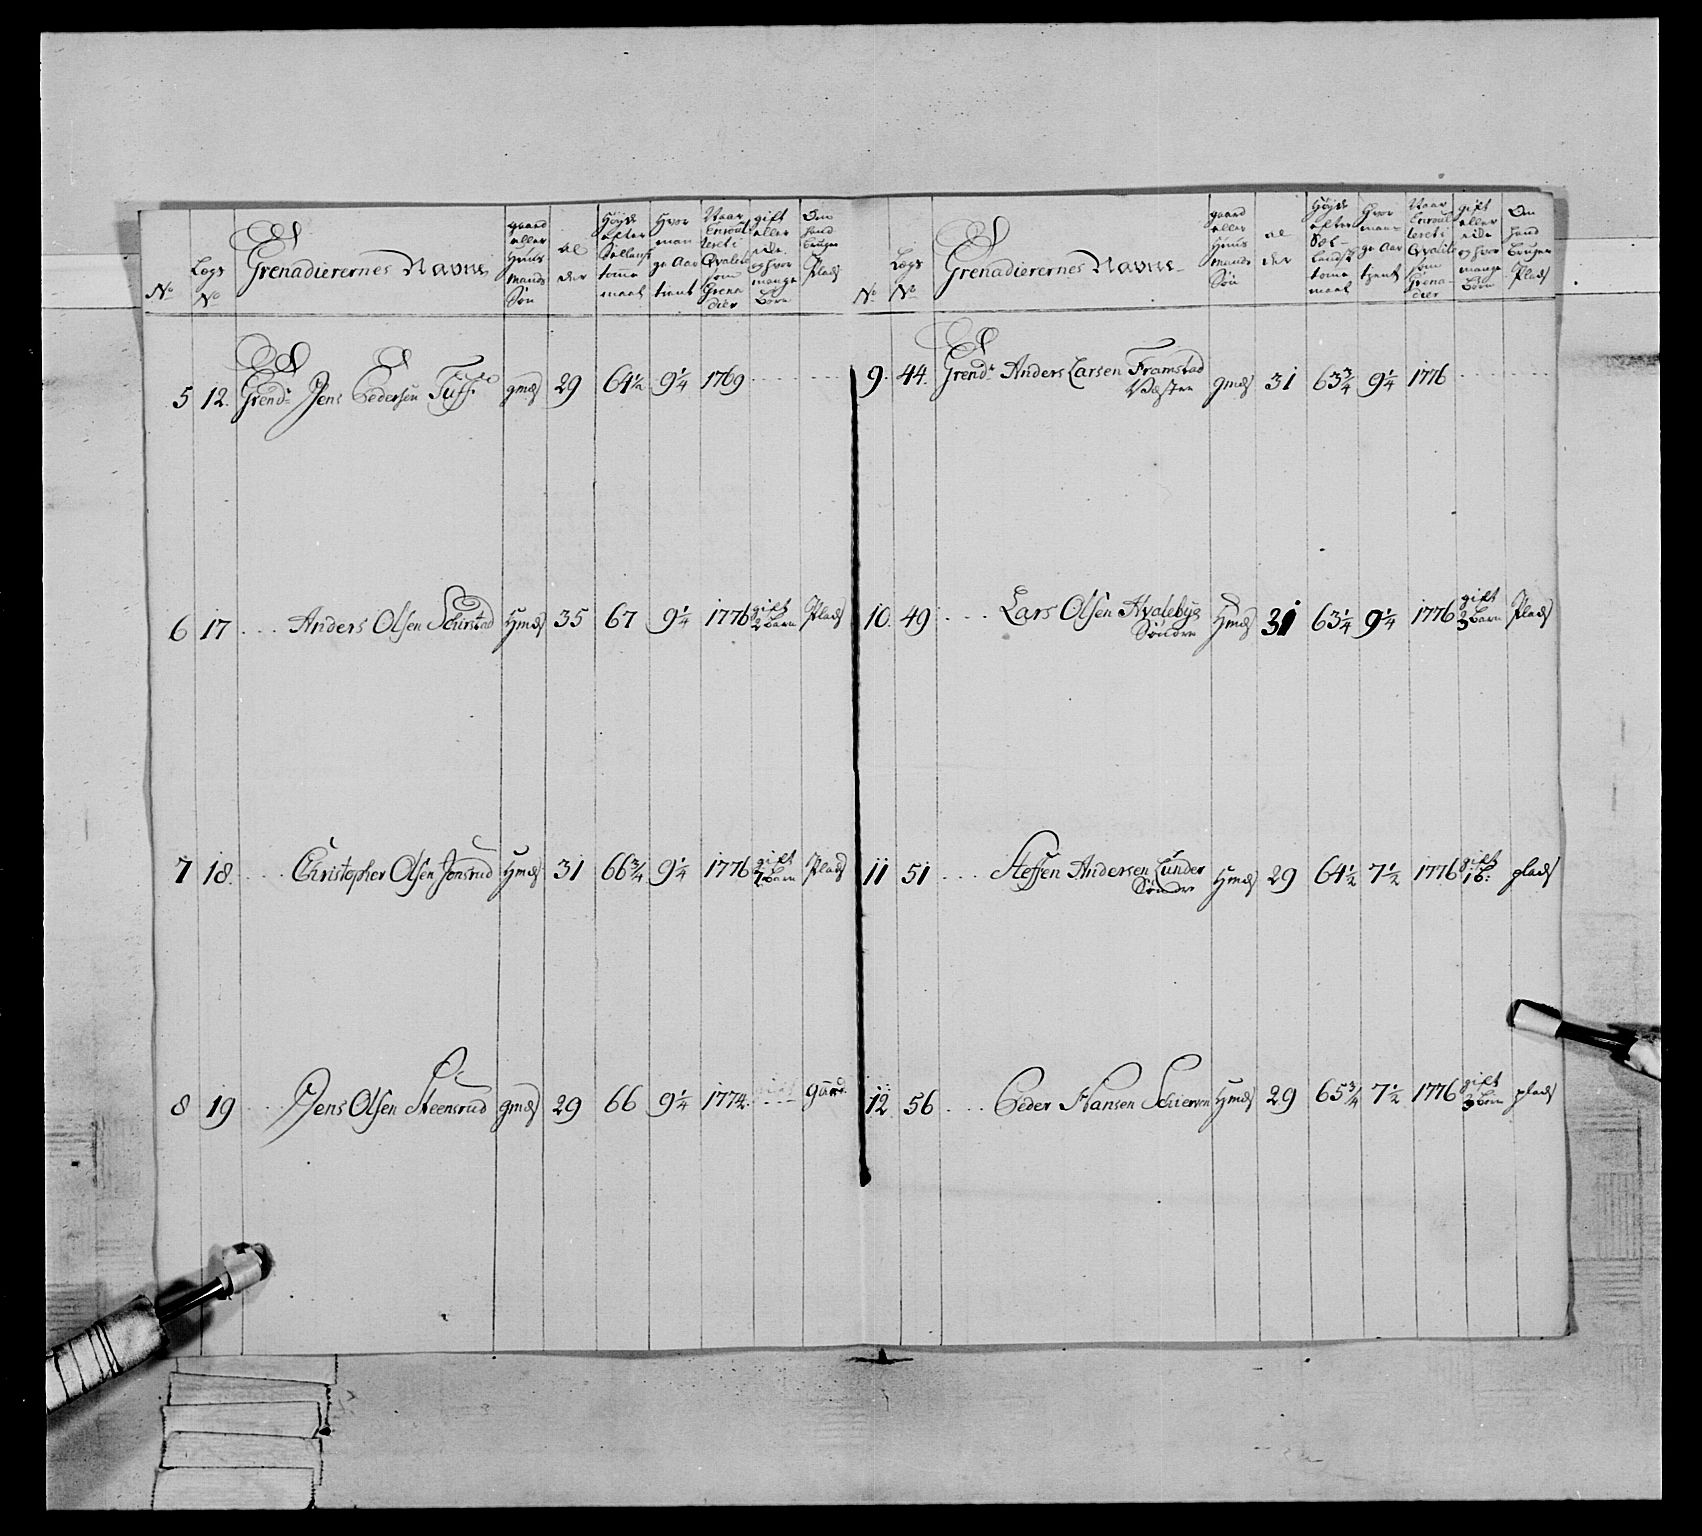 No
Legs No
Grenadierernes Navne
gaard eller Huus Mands Søn
al der
Høyde efter Siellans tomme maal
Hvor man ge Aar tient
Naar Enroul leret i Qvalitet som Grena dier
gift eller eide og hvor mange Børn
Den hand bruger Plads
5 12. Grendr Jens Pedersen gmds 29 64½ 9¼ 1769
6 17 Anders Olsen Schirstad Hmds 35 67 9¼ 1776 gift 2 Børn Plads
7 18. Christopher Olsen Jonsrud Hmds 31 66¾ 9¼ 1776 gift Børn Plads
8 19 Jens Olsen Steensrud gmds 29 66 9¼ 1774. gaard.
No
Legs No
Grenadierernes Navne
gaard eller Huus Mands Søn
al der
Høyde efter Sel- lands tomme maal
Hvor man- ge Aar tient
Naar Enroul leret i Qvalite som Grena- dier
gift eller eide og hvor mange Børn
Den hand bruger Plads
9. 44. Grendr Anders Larsen Framstad gmds 31 63¾ 9¼ 1776
Væstre
10. 49 Lars Olsen Hvalebye Hmds 31 63¼ 9¼ 1776 gift 3 Børn Plads
Søndre
11 51 Steffen Andersen Lunder Hmds 29 64½ 7½ 1776 gift 1 b: plads
Søndre
12. 56 Peder Hansen Schierven Hmds 29 65¾ 7½ 1776 gift 3 Børn plads